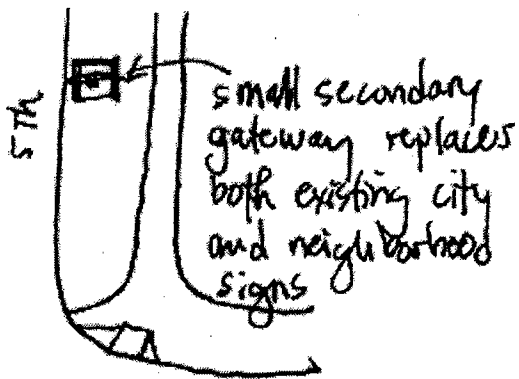 5TH
small secondary
gateway replaces
both existing city
and neighborhood
signs